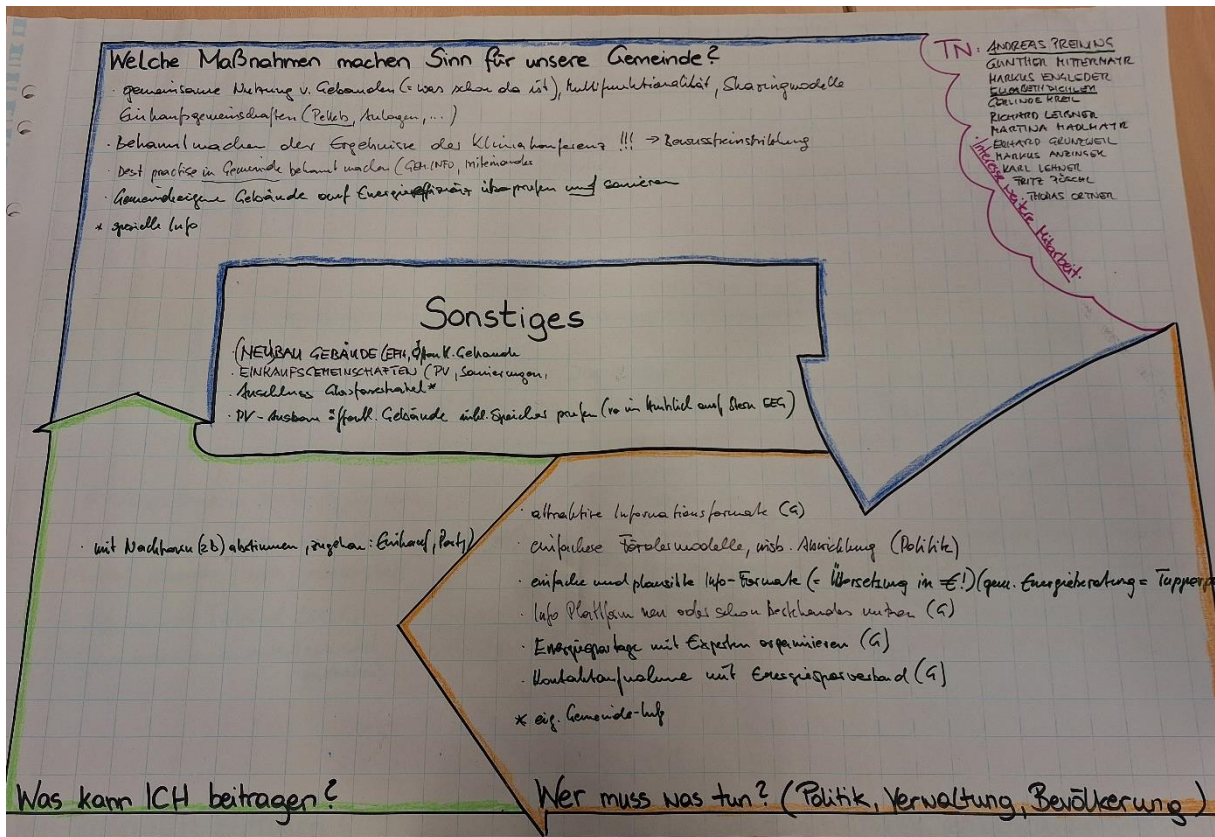 Welche Maßnahmen machen Sinn für unsere Gemeinde?
· gemeinsame Nutzung v. Gebäuden (= was schon da ist), Multifunktionalität, Sharingmodelle
Einkaufsgemeinschaften (Pellets, Anlagen, ...)
· Bekanntmachen der Ergebnisse der Klimakonferenz !!! → Bewusstseinsbildung
· Best practise in Gemeinde bekannt machen (GEM.INFO, Miteinander
· Gemeindeeigene Gebäude auf Energieeffizienz überprüfen und sanieren
* spezielle Info
TN: ANDREAS PREINING
GÜNTHER MITTERMAYR
MARKUS ENGLEDER
ELISABETH PICHLER
GERLINDE KREIL
RICHARD
MARTINA HADLMAYR
ERHARD GRÜNZWEIL
MARKUS ANZINGER
KARL LEHNER
FRITZ PÖSCHL
· THOMAS ORTNER
Interesse weitere Mitarbeit.
Sonstiges
· (NEU)BAU GEBÄUDE (EFH, öffentl. Gebäude
· EINKAUFSGEMEINSCHAFTEN (PV, Sanierungen,
· Anschluss Glasfaserkabel *
· PV-Ausbau öffentl. Gebäude inkl. Speicher prüfen (va im Hinblick auf Stern EEG)
· mit Nachbarn (zb) abstimmen, zugehen: Einkauf, Party)
Was kann ICH beitragen?
· attraktive Informationsformate (G)
· einfachere Fördermodelle, insb. Abwicklung (Politik)
· einfache und plausible Info-Formate (= Übersetzung in €!) (gem. Energieberatung =
· Info Plattform neu oder schon Bestehendes nutzen (G)
· Energiespartage mit Experten organisieren (G)
· Kontaktaufnahme mit Energiesparverband (G)
* eig. Gemeinde-Info
Wer muss was tun? (Politik, Verwaltung, Bevölkerung)